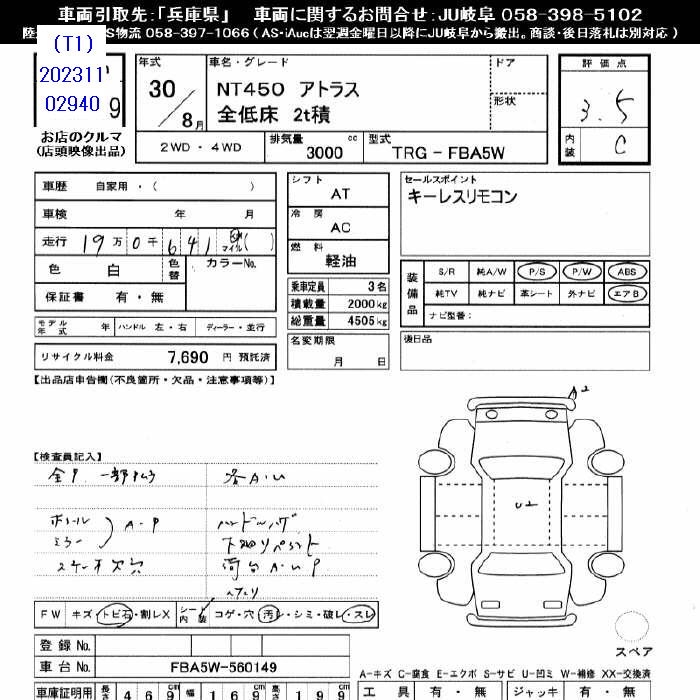 車両引取先:「兵庫県」 車両に関するお問合せ:JU岐阜 058-398-5102
S物流 058-397-1066 ( AS・iAucは翌週金曜日以降にJU岐阜から搬出。商談・後日落札は別対応 )
(T1)
202311
02940 9
お店のクルマ
(店頭映像出品)
年式 30/8月
車名・グレード
NT450 アトラス
全低床 2t積
ドア
形状
評価点
3.5
内装 C
2WD ・ 4WD
排気量 3000 cc
型式 TRG-FBA5W
車歴 自家用・( )
車検 年 月
走行 19万0千641 マイル( )
色 白 色替 カラーNo.
保証書 有・無
モデル年式 年 ハンドル 左・右 ディーラー・並行
リサイクル料金 7,690 円 預託済
シフト AT
冷房 AC
燃料 軽油
乗車定員 3名
積載量 2000kg
総重量 4505kg
名変期限
月 日
セールスポイント
キーレスリモコン
装備品
S/R 純A/W P/S P/W ABS
純TV 純ナビ 革シート 外ナビ エアB
ナビ型番:
後日品
【出品店申告欄(不良箇所・欠品・注意事項等)】
【検査員記入】
各A・U
ミラー
A・P
A2
U2
FW キズ・トビ石・割レX シート内装 コゲ・穴・汚レ・シミ・破レ・スレ
登録No.
車台No. FBA5W-560149
スペア
A-キズ C-腐食 E-エクボ S-サビ U-凹ミ W-補修 XX-交換済
車庫証明用 長さ 469cm 幅 169cm 高さ 199cm
工具 有・無 ジャッキ 有・無